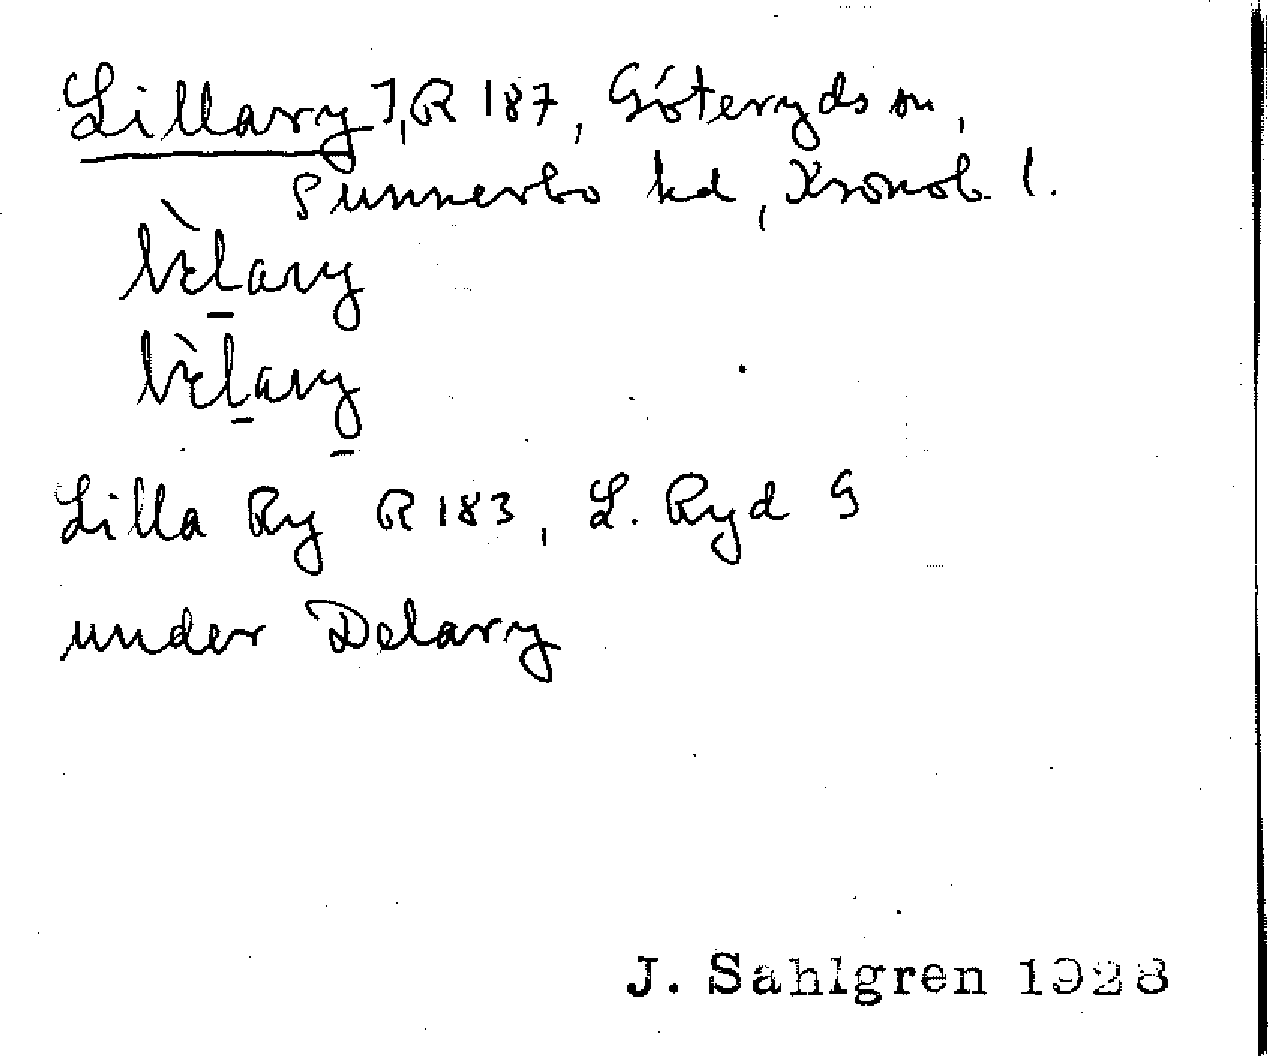 Lillary T, R 187, Göteryds sn,
Sunnerbo hd, Kronob. l.
lìlary
lìlary
Lilla Ry R 183, L. Ryd G
under Delary
J. Sahlgren 1928